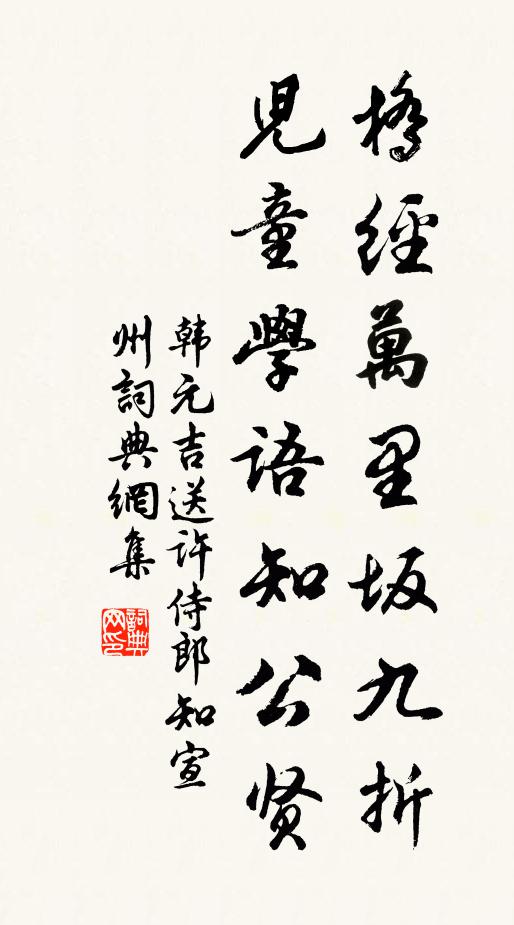 橋經萬里坂九折
兒童學語知公贤
韩元吉送许侍郎知宣
州詞典網集
詞典網印